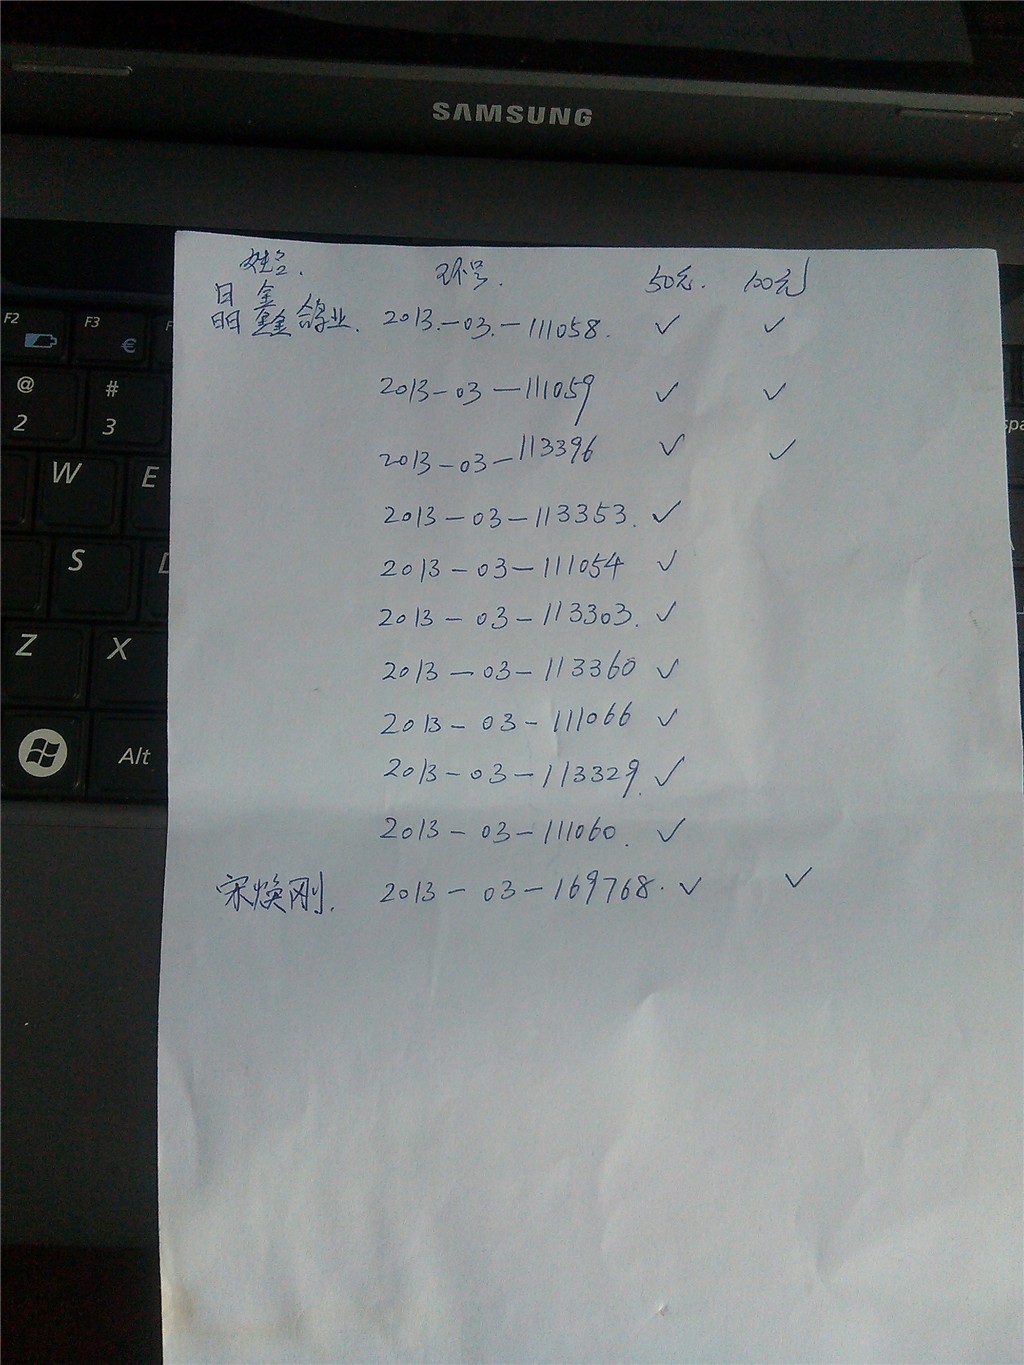 SAMSUNG
姓名. 环号. 50元. 100元
晶鑫鸽业. 2013.-03.-111058. ✓ ✓
2013-03-111059 ✓ ✓
2013-03-113396 ✓ ✓
2013-03-113353. ✓
2013-03-111054 ✓
2013-03-113303. ✓
2013-03-113360 ✓
2013-03-111066 ✓
2013-03-113329. ✓
2013-03-111060. ✓
宋焕刚. 2013-03-169768. ✓ ✓
F2
F3
€
F
@
2
#
3
W
E
S
Z
X
Alt
spa